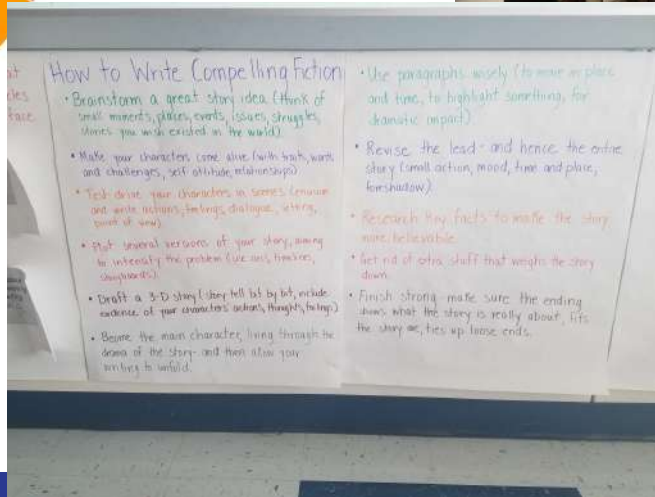 at
cles
face
How to Write Compelling Fiction
• Brainstorm a great story idea (think of
small moments, places, events, issues, struggles,
stories you wish existed in the world).
• Make your characters come alive (with traits, wants
and challenges, self attitude, relationships)
• Test drive your characters in scenes (envision
and write actions, feelings, dialogue, setting,
point of view)
• Plot several versions of your story, aiming
to intensify the problem (use arcs, timelines,
storyboards).
• Draft a 3-D story (story tell bit by bit, include
evidence of your characters' actions, thoughts, feelings)
• Become the main character, living through the
drama of the story- and then allow your
writing to unfold.
• Use paragraphs wisely (to move in place
and time, to highlight something, for
dramatic impact).
• Revise the lead - and hence the entire
story (small action, mood, time and place,
foreshadow).
• Research key facts to make the story
more believable.
• Get rid of extra stuff that weighs the story
down.
• Finish strong- make sure the ending
shows what the story is really about, fits
the story arc, ties up loose ends.